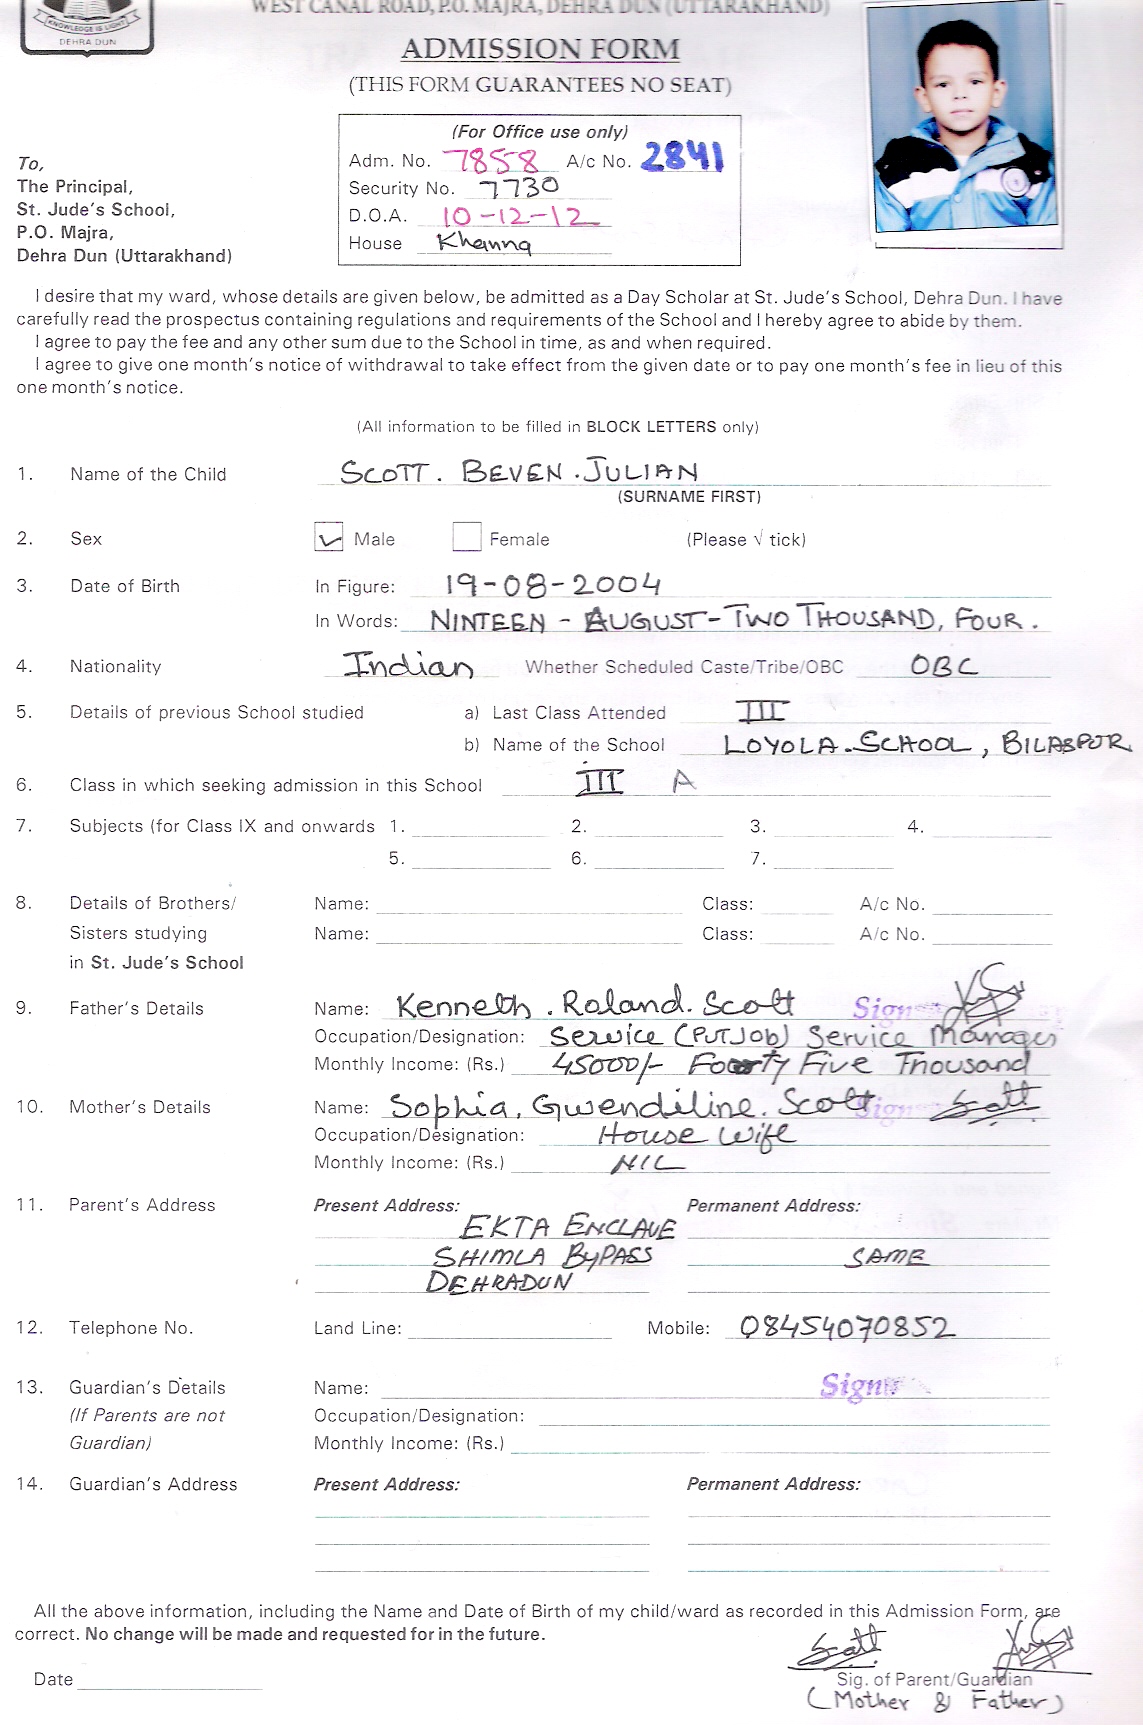 WEST CANAL ROAD, P.O. MAJRA, DEHRA DUN (UTTARAKHAND)
KNOWLEDGE IS LIGHT
DEHRA DUN
ADMISSION FORM
(THIS FORM GUARANTEES NO SEAT)
(For Office use only)
Adm. No. 7858 A/c No. 2841
Security No. 7730
D.O.A. 10-12-12
House Khanna
To,
The Principal,
St. Jude's School,
P.O. Majra,
Dehra Dun (Uttarakhand)
I desire that my ward, whose details are given below, be admitted as a Day Scholar at St. Jude's School, Dehra Dun. I have
carefully read the prospectus containing regulations and requirements of the School and I hereby agree to abide by them.
I agree to pay the fee and any other sum due to the School in time, as and when required.
I agree to give one month's notice of withdrawal to take effect from the given date or to pay one month's fee in lieu of this
one month's notice.
(All information to be filled in BLOCK LETTERS only)
1. Name of the Child SCOTT. BEVEN. JULIAN
(SURNAME FIRST)
2. Sex Male Female (Please √ tick)
3. Date of Birth In Figure: 19-08-2004
In Words: NINTEEN - AUGUST - TWO THOUSAND, FOUR.
4. Nationality Indian Whether Scheduled Caste/Tribe/OBC OBC
5. Details of previous School studied a) Last Class Attended III
b) Name of the School LOYOLA. SCHOOL, BILASPUR
6. Class in which seeking admission in this School III A
7. Subjects (for Class IX and onwards 1. 2. 3. 4.
5. 6. 7.
8. Details of Brothers/ Name: Class: A/c No.
Sisters studying Name: Class: A/c No.
in St. Jude's School
9. Father's Details Name: Kenneth. Roland. Scott Sign
Occupation/Designation: Service (PVT Job) Service Manager
Monthly Income (Rs.) 45000/- Foorty Five Thousand
10. Mother's Details Name: Sophia. Gwendiline. Scott Sign Scott
Occupation/Designation: House Wife
Monthly Income: (Rs.) NIL
11. Parent's Address Present Address: Permanent Address:
EKTA ENCLAVE
SHIMLA ByPASS SAME
DEHRADUN
12. Telephone No. Land Line: Mobile: 08454070852
13. Guardian's Details Name: Sign
(If Parents are not Occupation/Designation:
Guardian) Monthly Income: (Rs.)
14. Guardian's Address Present Address: Permanent Address:
All the above information, including the Name and Date of Birth of my child/ward as recorded in this Admission Form, are
correct. No change will be made and requested for in the future.
Scott
Date Sig. of Parent/Guardian
(Mother & Father)